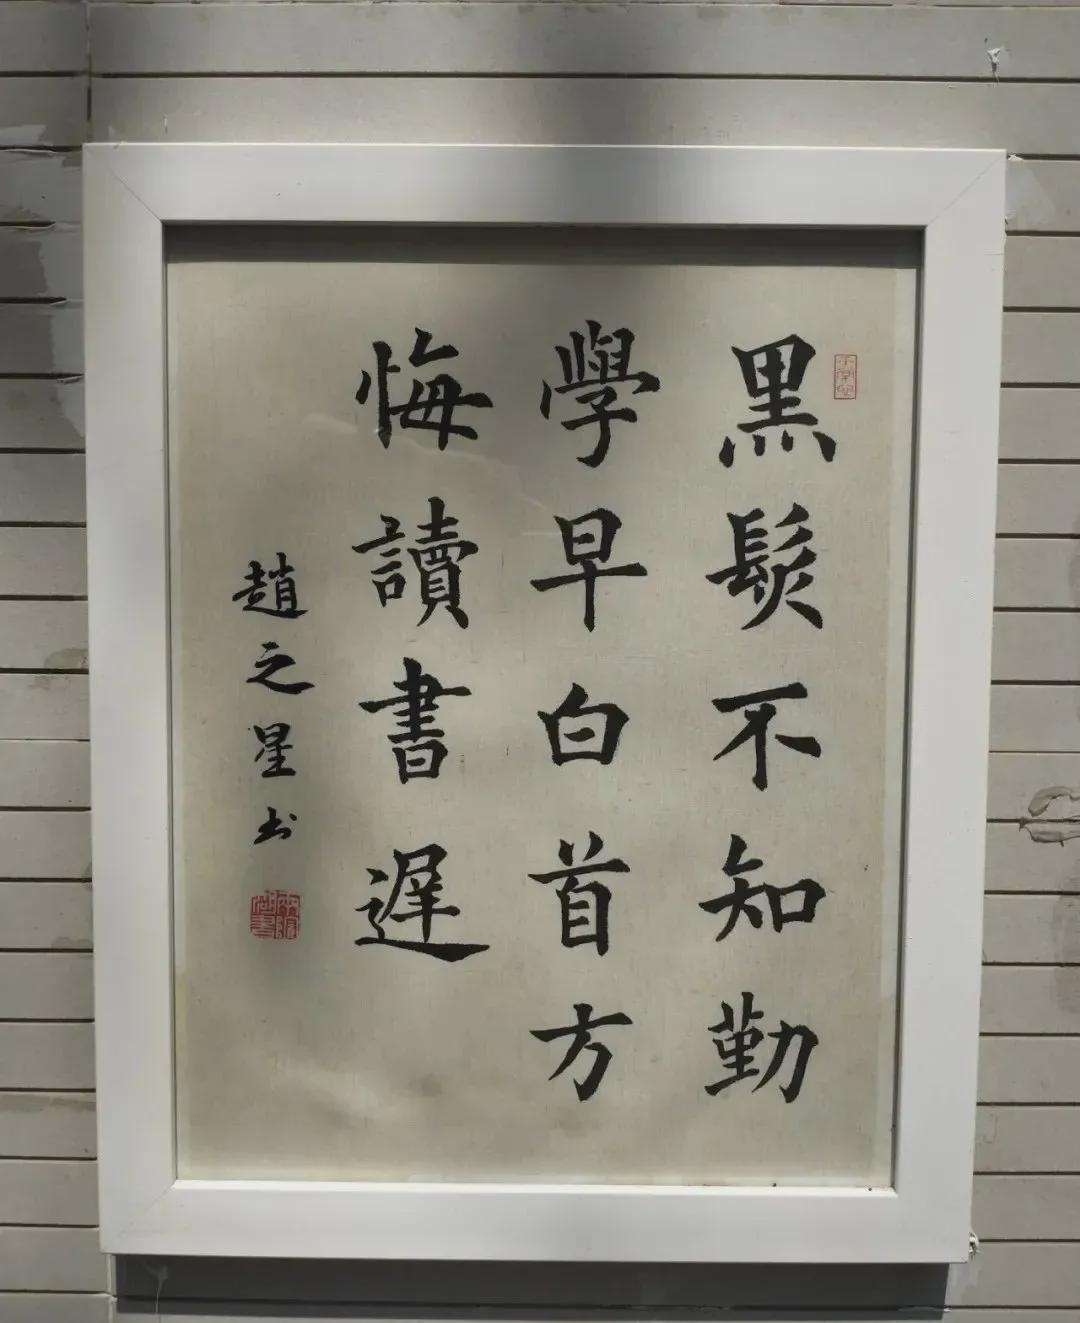 黑髮不知勤
學早白首方
悔讀書遲
趙之星书